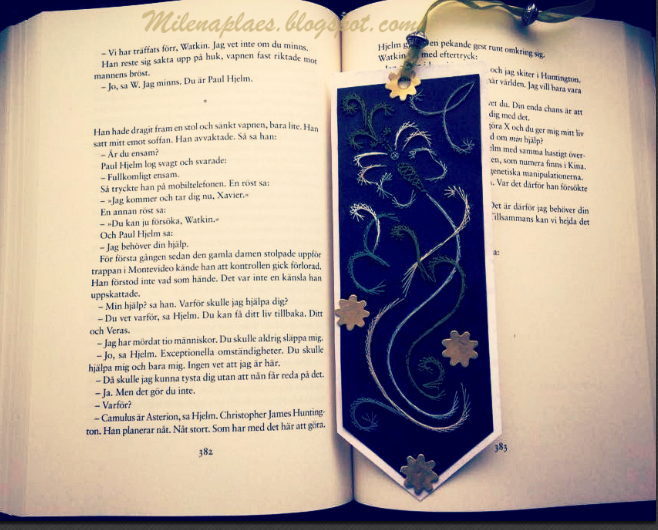 Milenaplaes.blogspot.com
– Vi har träffats förr, Watkin. Jag vet inte om du minns.
Han reste sig sakta upp på huk, vapnen fast riktade mot
mannens bröst.
– Jo, sa W. Jag minns. Du är Paul Hjelm.
*
Han hade dragit fram en stol och sänkt vapnen, bara lite. Han
satt mitt emot soffan. Han avvaktade. Så sa han:
– Är du ensam?
Paul Hjelm log svagt och svarade:
– Fullkomligt ensam.
Så tryckte han på mobiltelefonen. En röst sa:
– »Jag kommer och tar dig nu, Xavier.«
En annan röst sa:
– »Du kan ju försöka, Watkin.«
Och Paul Hjelm sa:
– Jag behöver din hjälp.
För första gången sedan den gamla damen stolpade uppför
trappan i Montevideo kände han att kontrollen gick förlorad.
Han förstod inte vad som hände. Det var inte en känsla han
uppskattade.
– Min hjälp? sa han. Varför skulle jag hjälpa dig?
– Du vet varför, sa Hjelm. Du kan få ditt liv tillbaka. Ditt
och Veras.
– Jag har mördat tio människor. Du skulle aldrig släppa mig.
– Jo, sa Hjelm. Exceptionella omständigheter. Du skulle
hjälpa mig och bara mig. Ingen vet att jag är här.
– Då skulle jag kunna tysta dig utan att nån får reda på det.
– Ja. Men det gör du inte.
– Varför?
– Camulus är Asterion, sa Hjelm. Christopher James Hunting-
ton. Han planerar nåt. Nåt stort. Som har med det här att göra.
382
Hjelm en pekande gest runt omkring sig.
Watkin med eftertryck:
och jag skiter i Huntington.
här världen. Jag vill bara vara
vet du. Din enda chans är att
dig med det.
göra X och du ger mig mitt liv
d om min hjälp?
elm med samma hastigt över-
en, som numera finns i Kina.
genetiska manipulationerna.
. Var det därför han försökte
Det är därför jag behöver din
Tillsammans kan vi hejda det
a:
383